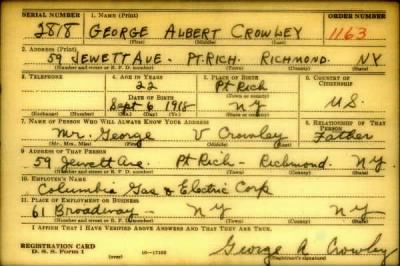 SERIAL NUMBER 1. NAME (Print) ORDER NUMBER
2818 GEORGE ALBERT CROWLEY 1163
(First) (Middle) (Last)
2. ADDRESS (Print)
59 JEWETT AVE. PT. RICH. RICHMOND. NY
(Number and street or R. F. D. number) (Town) (County) (State)
3. TELEPHONE 4. AGE IN YEARS 5. PLACE OF BIRTH 6. COUNTRY OF CITIZENSHIP
22 Pt Rich
DATE OF BIRTH (Town or county)
Sept 6 1918 NY U.S.
(Mo.) (Day) (Yr.) (State or country)
7. NAME OF PERSON WHO WILL ALWAYS KNOW YOUR ADDRESS 8. RELATIONSHIP OF THAT PERSON
Mr. George V Crowley Father
(Mr., Mrs., Miss) (First) (Middle) (Last)
9. ADDRESS OF THAT PERSON
59 Jewett Ave. Pt Rich - Richmond. N.Y.
(Number and street or R. F. D. number) (Town) (County) (State)
10. EMPLOYER'S NAME
Columbia Gas & Electric Corp
11. PLACE OF EMPLOYMENT OR BUSINESS
61 Broadway - NY NY
(Number and street or R. F. D. number) (Town) (County) (State)
I AFFIRM THAT I HAVE VERIFIED ABOVE ANSWERS AND THAT THEY ARE TRUE.
REGISTRATION CARD
D. S. S. Form 1 (over) 16-17105 George A Crowley
(Registrant's signature)